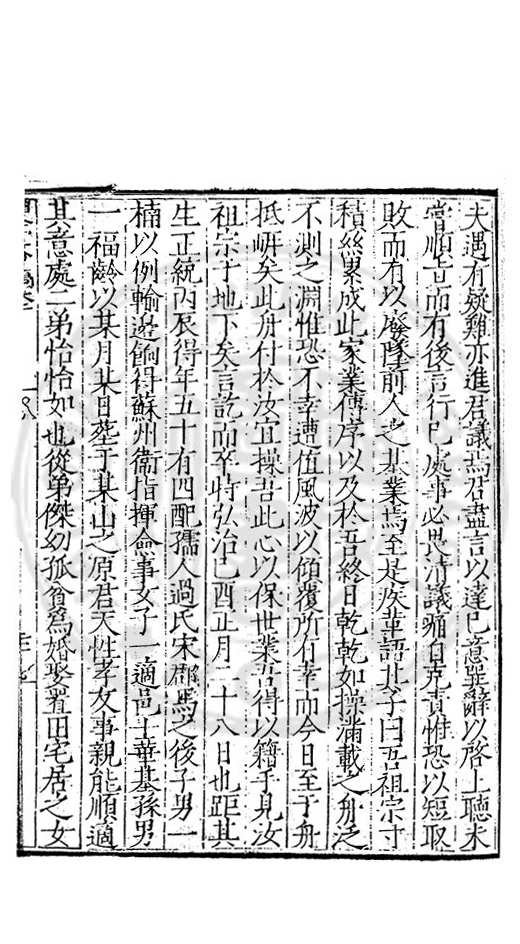 夫遇有疑難亦進君議焉君盡言以達已意巽辭以啓上聽未
嘗順旨而有後言行已處事必畏清議痛自克責惟恐以短取
敗而有以廢墜前人之基業焉至是疾革語其子曰吾祖宗寸
積絲累成此家業傳序以及於吾終日乾乾如操滿載之舟泛
不測之淵惟恐不幸遭值風波以傾覆所有幸而今日至于舟
抵岍矣此舟付於汝宜操吾此心以保世業吾得以籍手見汝
祖宗于地下矣言訖而卒時弘治己酉正月二十八日也距其
生正統丙辰得年五十有四配孺人過氏宋郡馬之後子男一
楠以例輸邊餉得蘇州衞指揮僉事女子一適邑士華基孫男
一福齡以某月某日葬于某山之原君天性孝友事親能順適
其意處二弟怡怡如也從弟傑幼孤貧爲婚娶置田宅居之女